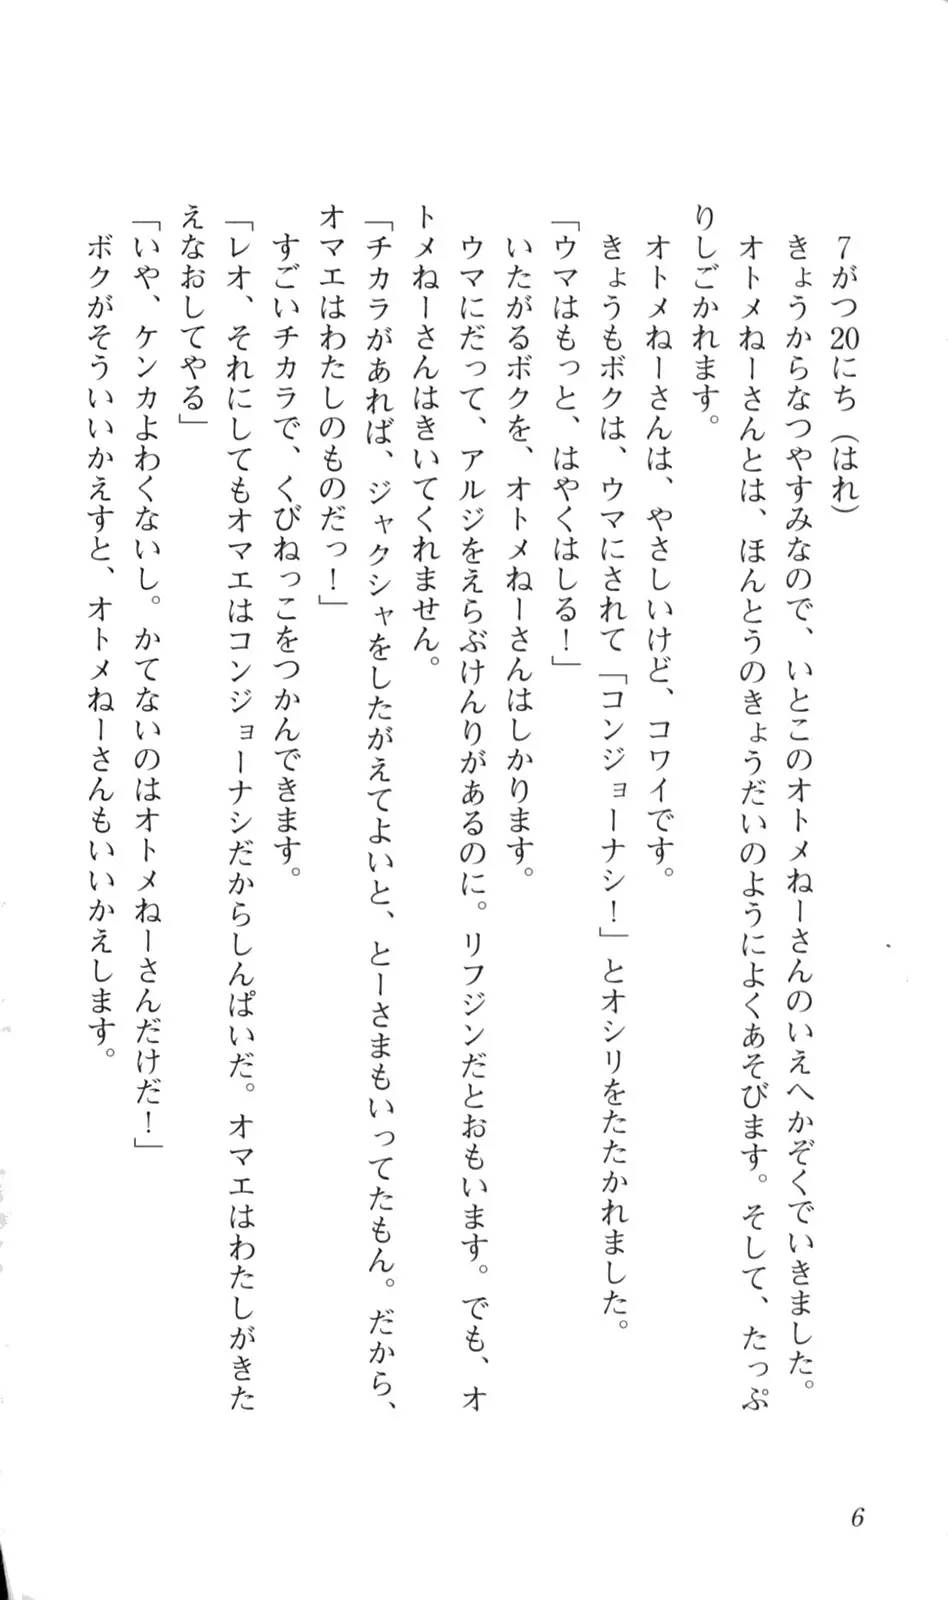 7がつ20にち（はれ）
きょうからなつやすみなので、いとこのオトメねーさんのいえへかぞくでいきました。
オトメねーさんとは、ほんとうのきょうだいのようによくあそびます。そして、たっぷ
りしごかれます。
オトメねーさんは、やさしいけど、コワイです。
きょうもボクは、ウマにされて「コンジョーナシ！」とオシリをたたかれました。
「ウマはもっと、はやくはしる！」
いたがるボクを、オトメねーさんはしかります。
ウマにだって、アルジをえらぶけんりがあるのに。リフジンだとおもいます。でも、オ
トメねーさんはきいてくれません。
「チカラがあれば、ジャクシャをしたがえてよいと、とーさまもいってたもん。だから、
オマエはわたしのものだっ！」
すごいチカラで、くびねっこをつかんできます。
「レオ、それにしてもオマエはコンジョーナシだからしんぱいだ。オマエはわたしがきた
えなおしてやる」
「いや、ケンカよわくないし。かてないのはオトメねーさんだけだ！」
ボクがそういいかえすと、オトメねーさんもいいかえします。
6